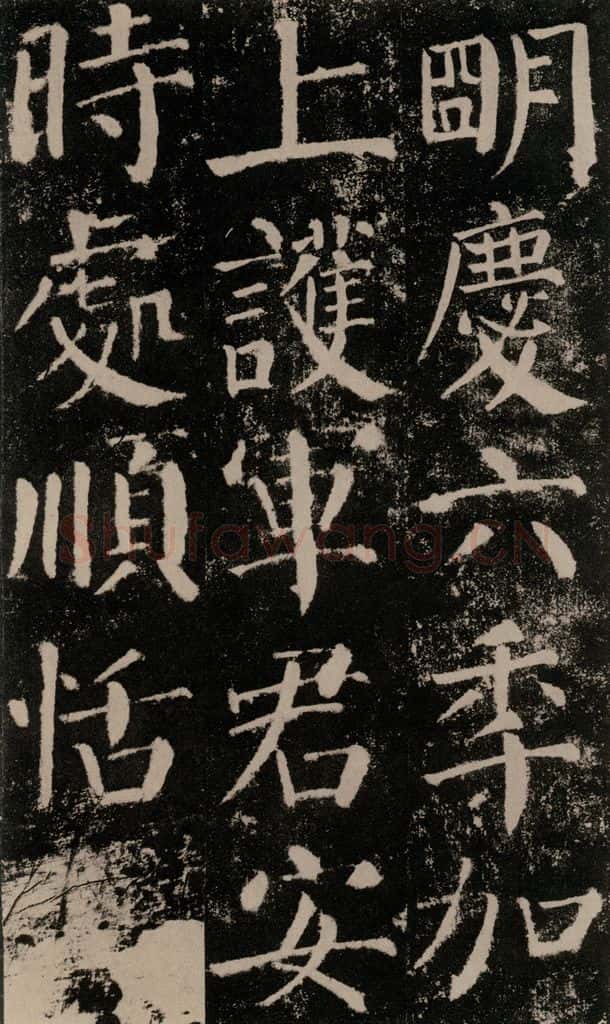 朙慶六秊加
上護軍君安
時處順恬
Shufawang.CN